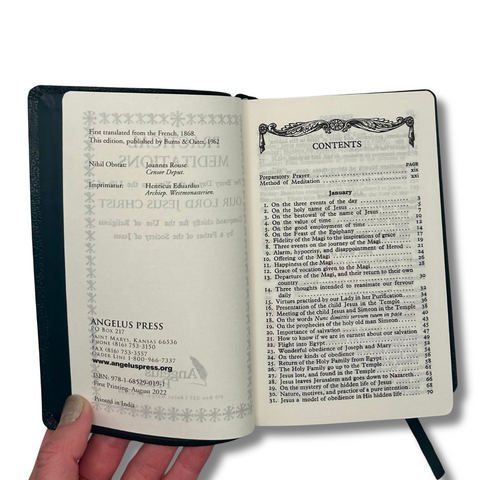 First translated from the French, 1868.
This edition, published by Burns & Oates, 1962
Nihil Obstat: Joannes Rouse
Censor Deput.
Imprimatur: Henricus Eduardus
Archiep. Westmonasterien.
ANGELUS PRESS
PO BOX 217
SAINT MARYS, KANSAS 66536
PHONE (816) 753-3150
FAX (816) 753-3557
ORDER LINE 1-800-966-7337
www.angeluspress.org
ISBN: 978-1-68529-019-1
First Printing–August 2022
Printed in India
CONTENTS
PAGE
Preparatory Prayer xix
Method of Meditation xxi
January
1. On the three events of the day 3
2. On the holy name of Jesus
3. On the bestowal of the name of Jesus
4. On the value of time
5. On the good employment of time
6. On the Feast of the Epiphany
7. Fidelity of the Magi to the inspirations of grace 17
8. Three events on the journey of the Magi
9. Alarm, hypocrisy, and disappointment of Herod
10. Offering of the Magi
11. Happiness of the Magi
12. Grace of vocation given to the Magi
13. Departure of the Magi, and their return to their own
country
14. Three thoughts intended to reanimate our fervour
daily
15. Virtues practised by our Lady in her Purification
16. Presentation of the child Jesus in the Temple
17. Meeting of the child Jesus and Simeon in the Temple
18. On the words Nunc dimittis servum tuum in pace
19. On the prophecies of the holy old man Simeon
20. Importance of salvation
21. How to know if we are in earnest about our salvation
22. Flight into Egypt
23. Wonderful obedience of Joseph and Mary
24. On three kinds of obedience
25. Return of the Holy Family from Egypt
26. The Holy Family go up to the Temple
27. Jesus lost, and found in the Temple
28. Jesus leaves Jerusalem and goes down to Nazareth
29. On the mystery of the hidden life of Jesus
30. Nature, motives, and practice of a pure intention
31. Jesus a model of obedience in His hidden life 70